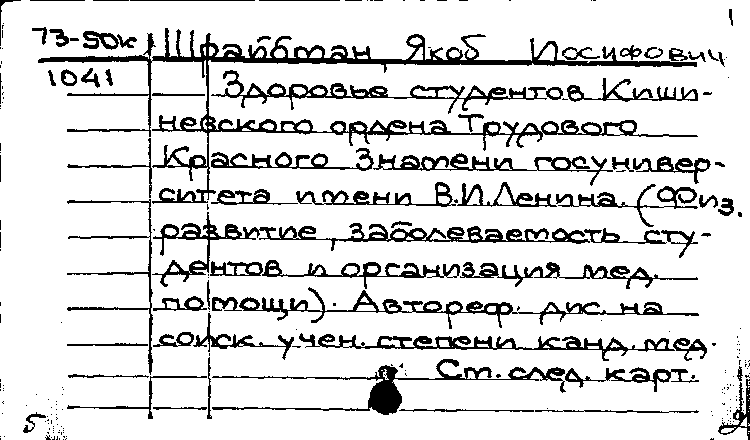 1
73-50к Шрайбман, Якоб Иосифович
1041 Здоровье студентов Киши-
невского ордена Трудового
Красного Знамени госунивер-
ситета имени В.И.Ленина. (Физ.
развитие, заболеваемость сту-
дентов и организация мед.
помощи). Автореф. дис. на
соиск. учен. степени канд. мед.
См. след. карт.
5